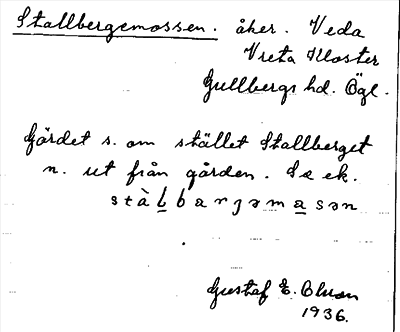 Stallbergemossen. åker. Veda
Vreta Kloster
Gullbergs hd. Ögl.
Gärdet s. om stället Stallberget
n. ut från gården. Se ek.
stàlbærjəmasən
Gustaf E. Olson
1936.